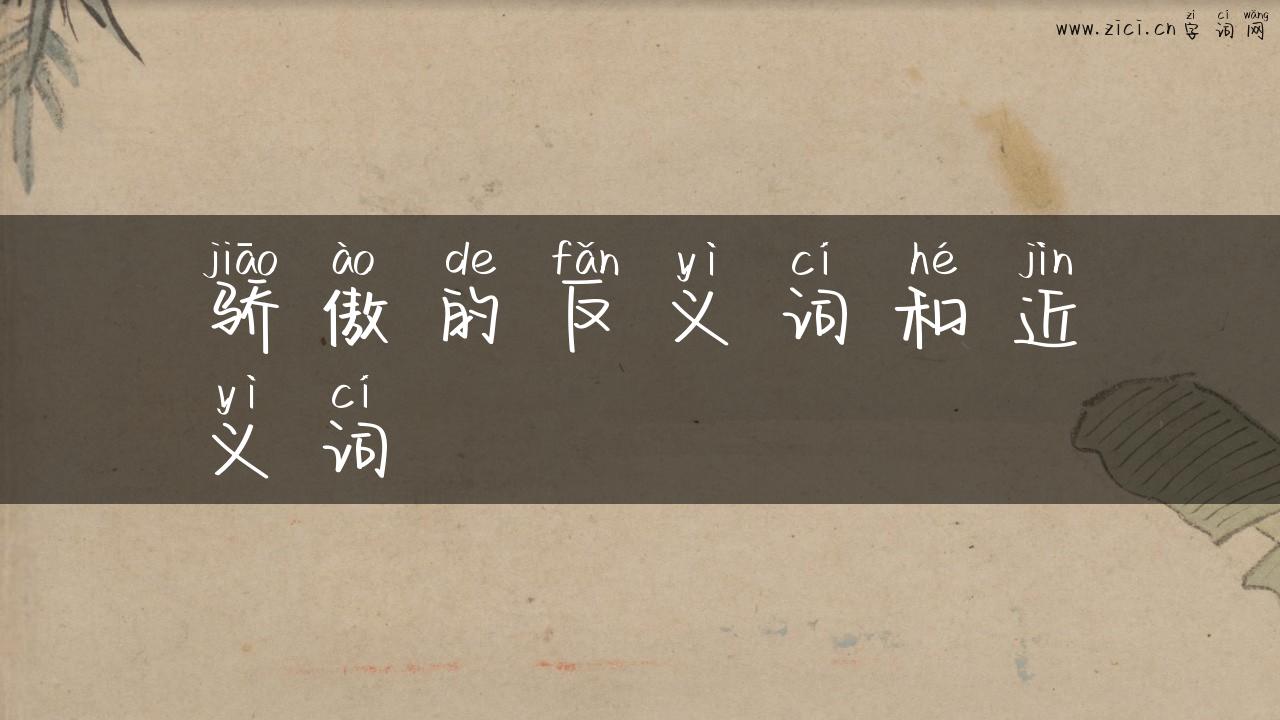 zì cí wǎng
www.zici.cn 字词网
jiāo ào de fǎn yì cí hé jìn
骄傲的反义词和近
yì cí
义词